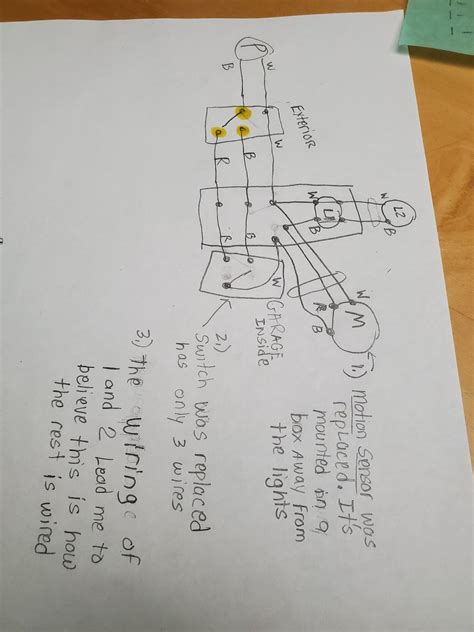 W
L2
B
W
L1
B
W
M
R
B
P
W
B
Exterior
W
B
R
W
B
R
GARAGE
INSIDE
1.) Motion Sensor was
replaced. It's
mounted in a
box away from
the lights
2.) Switch was replaced
has only 3 wires
3.) The wiring of
1 and 2 Lead me to
believe this is how
the rest is wired